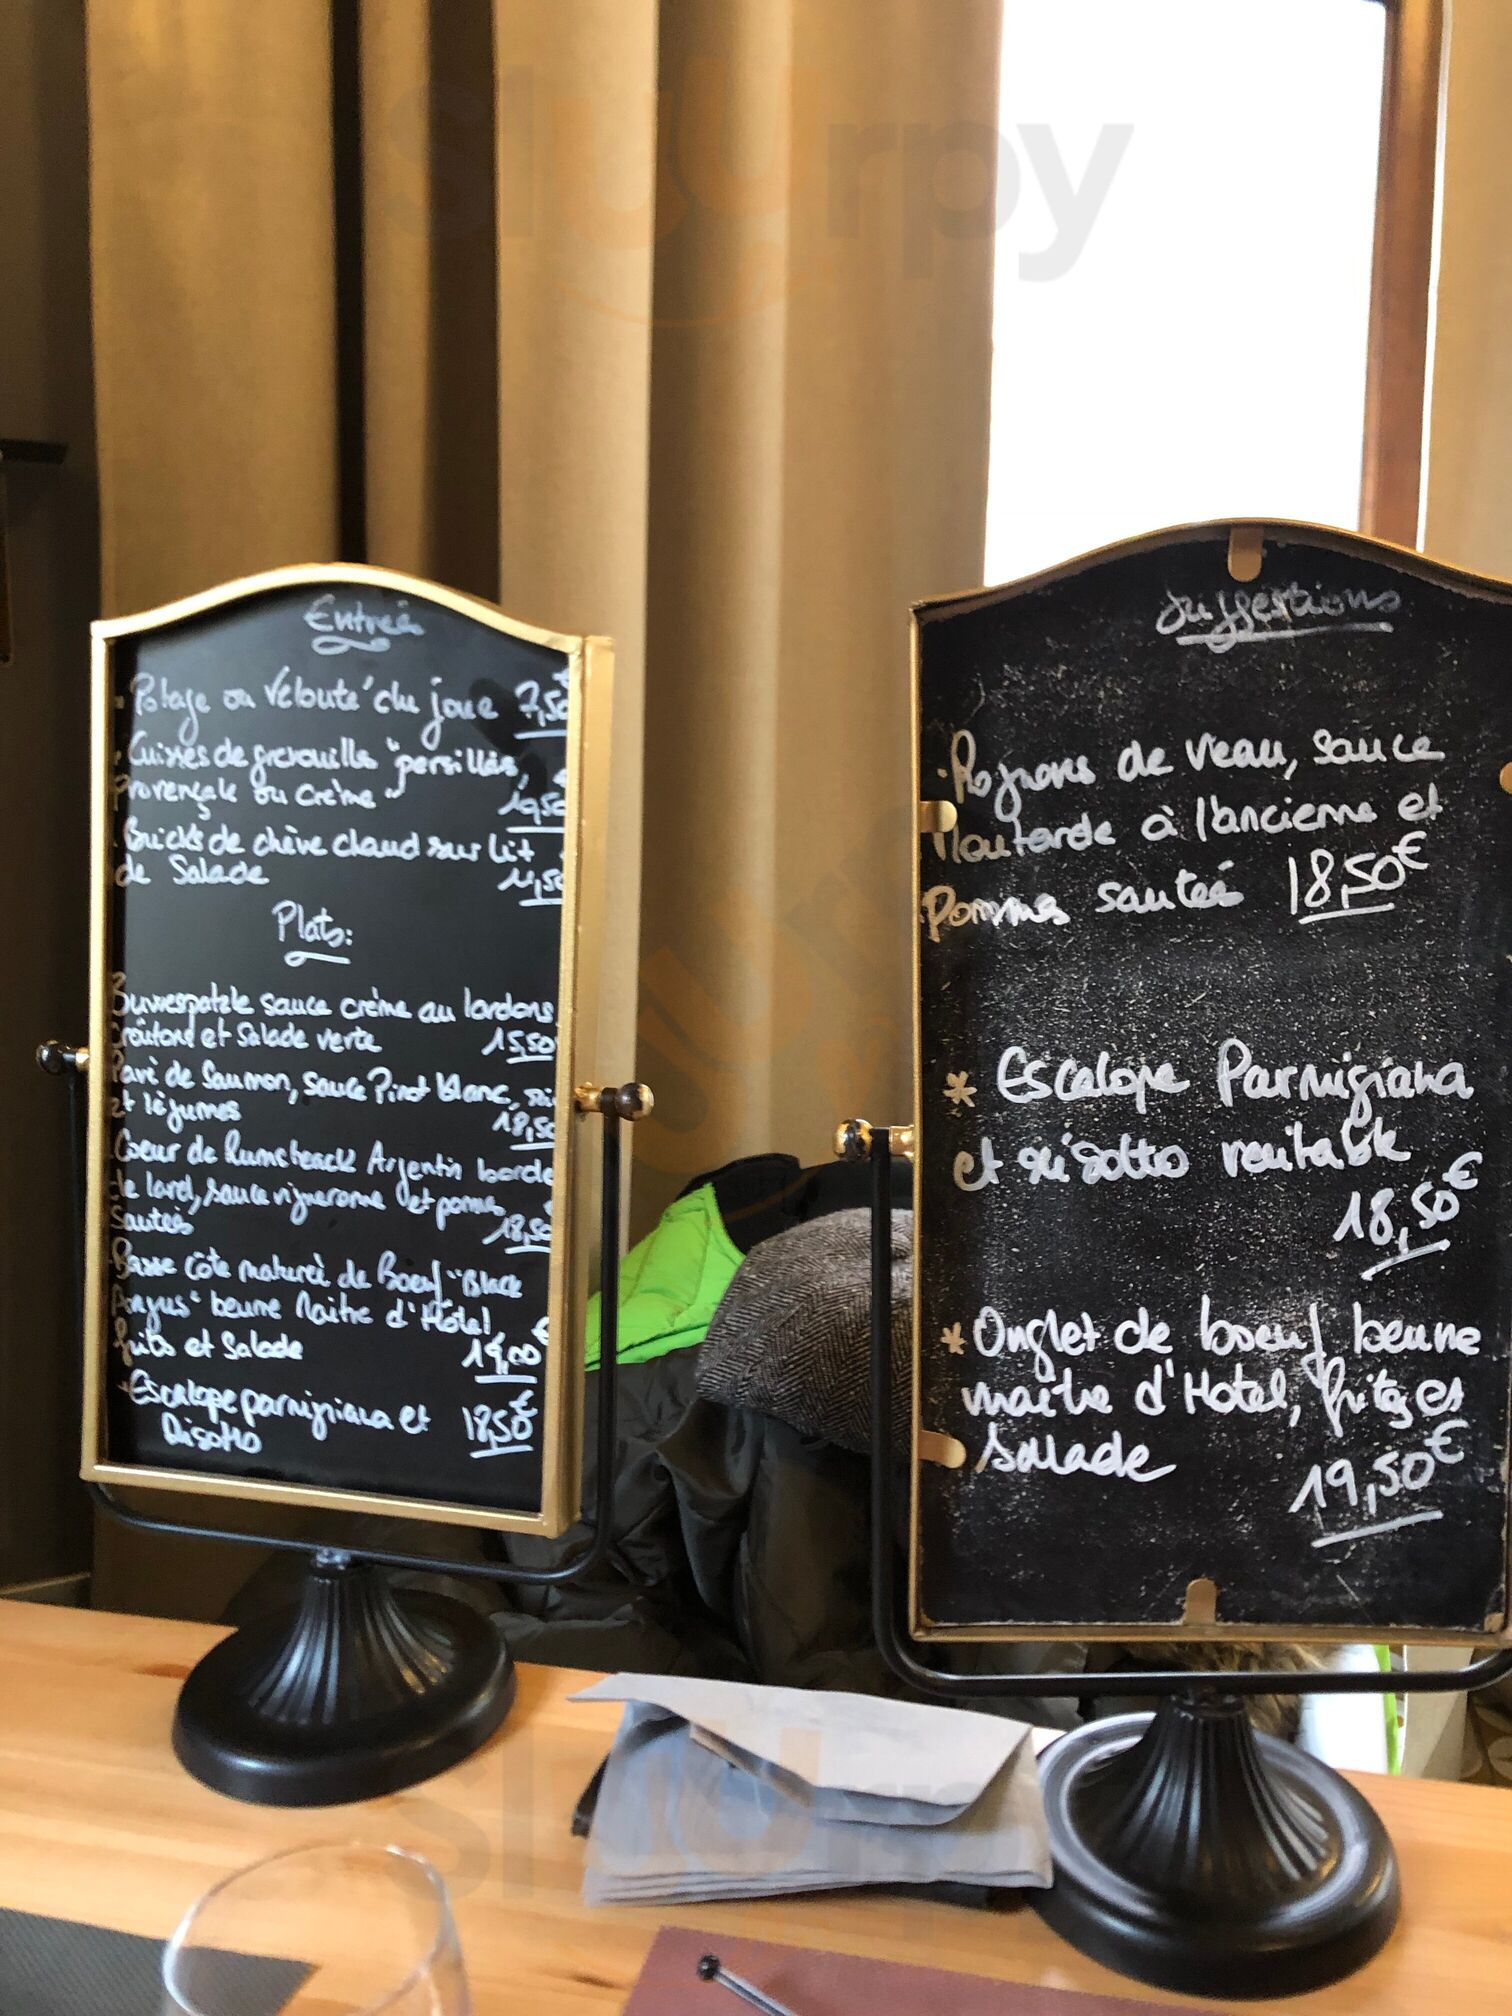 Entrées
Potage ou Velouté du jour 7,50
Cuisses de grenouilles "persillées,
Provençale ou Crème"
Bricks de chèvre chaud sur lit
de Salade 11,50
Plats:
Buwespatzle sauce crème au lardons
croûtons et Salade verte 15,50
Pavé de Saumon, sauce Pinot blanc, riz
et légumes 18,50
Coeur de Rumsteack Argentin bordé
de lard, sauce vigneronne et pommes
Sautées 18,50
Basse Côte maturée de Boeuf "Black
Angus" beurre Maître d'Hôtel
frites et Salade
Escalope parmigiana et 18,50€
Risotto
Suggestions
Rognons de veau, sauce
Moutarde à l'ancienne et
Pommes sautées 18,50€
* Escalope Parmigiana
et risotto
18,50€
* Onglet de boeuf beurre
maître d'Hotel, frites et
Salade
19,50€
Sluurpy
Sluurpy